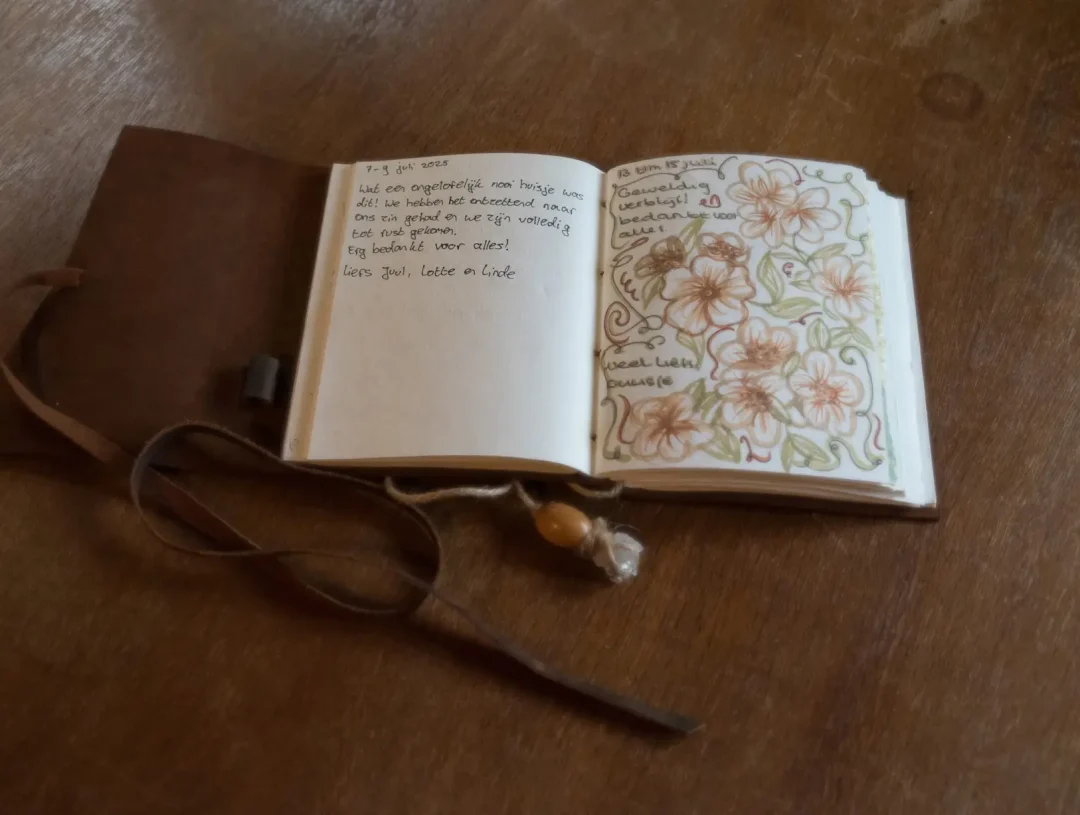 7-9 juli 2025
Wat een ongelofelijk mooi huisje was
dit! We hebben het ontzettend naar
ons zin gehad en we zijn volledig
tot rust gekomen.
Erg bedankt voor alles!
Liefs Juul, Lotte en Linde
13 t/m 15 juli
Geweldig
verblijf!
bedankt voor
alles
veel liefs